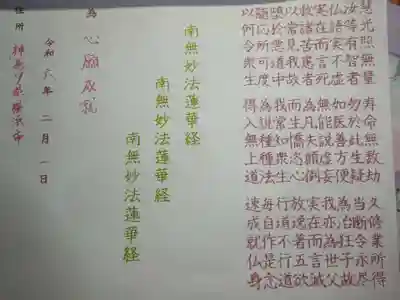 慧光照無量 寿命無数劫 久修業所得
汝等有智者 勿於此生疑 当断令永尽
仏語実不虚 如医善方便 為治狂子故
実在而言死 無能説虚妄 我亦為世父
救諸苦患者 為凡夫顛倒 実在而言滅
以常見我故 而生憍恣心 放逸著五欲
堕於悪道中 我常知衆生 行道不行道
随応所可度 為説種種法 毎自作是念
以何令衆生 得入無上道 速成就仏身
南無妙法蓮華経
南無妙法蓮華経
南無妙法蓮華経
為 心願成就
令和六年 二月一日
住所 神奈川県横浜市